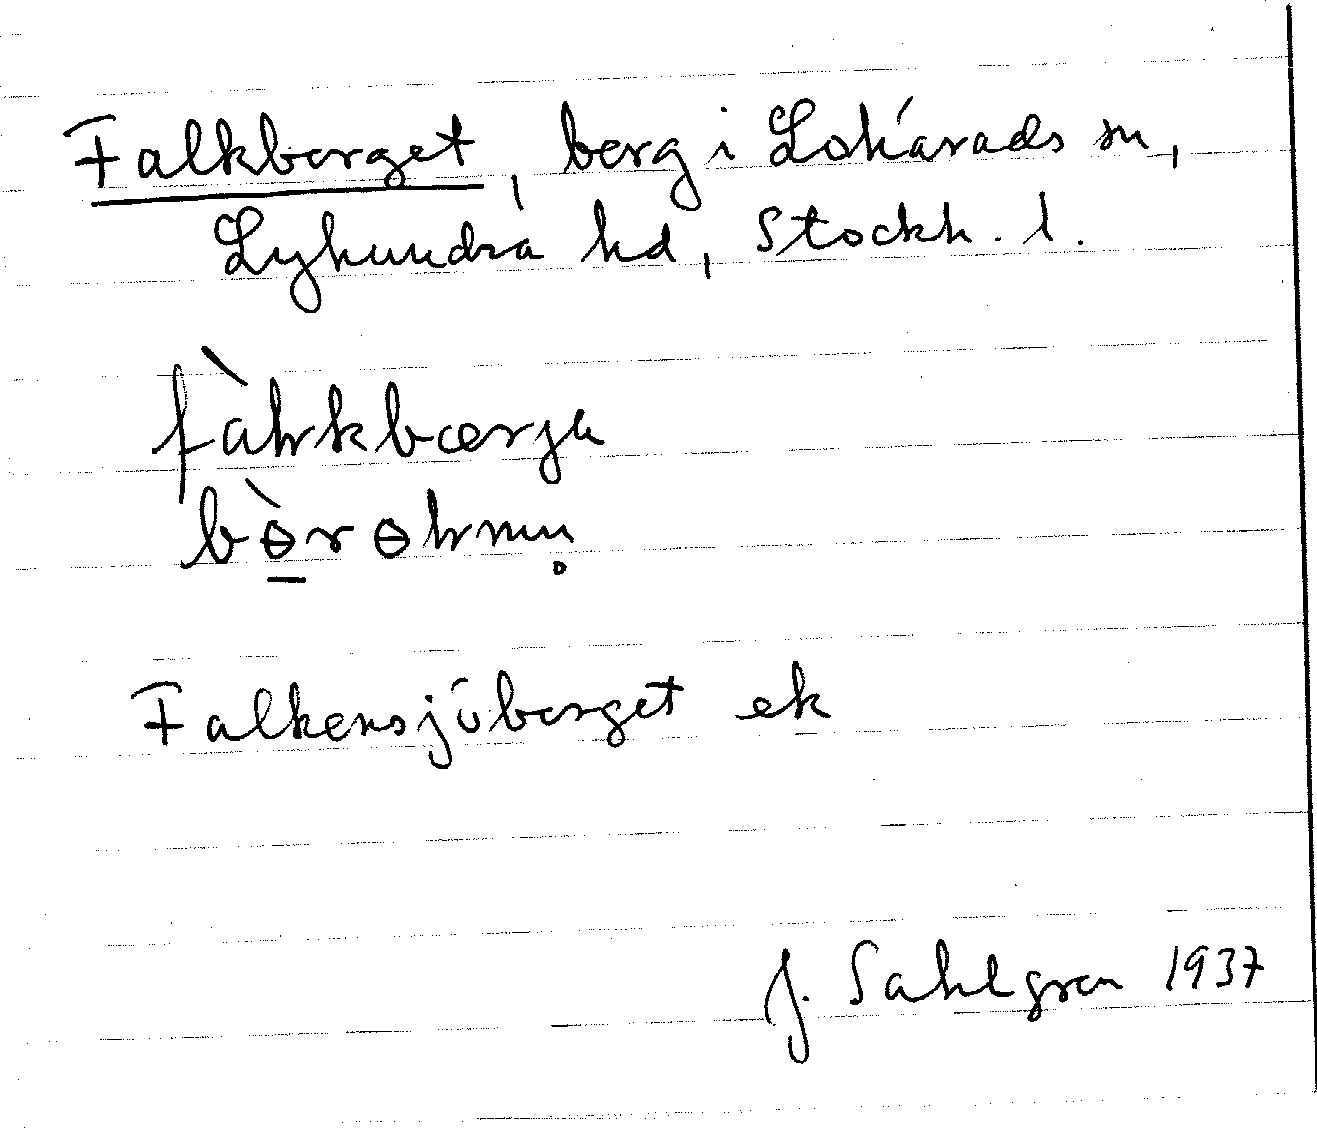 Falkberget, berg i Lohärads sn,
Lyhundra hd, Stockh. l.
Falkensjöberget ek
J. Sahlgren 1937